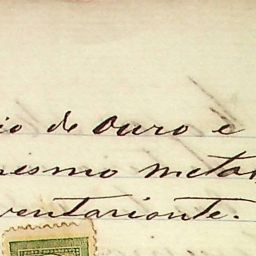 io de ouro e
mesmo metal
ventariante.